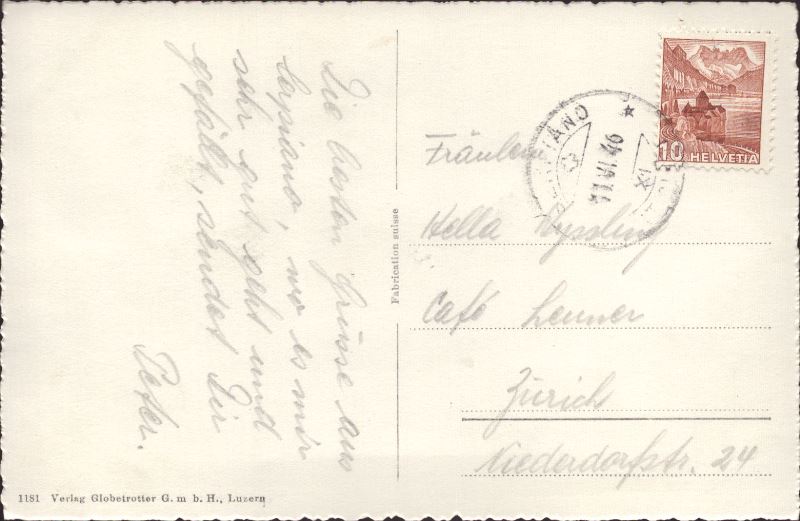 Die besten Grüsse aus
Lopiano, wo es mir
sehr gut geht und
gefällt, sendet Dir
Peter.
Fabrication suisse
1181 Verlag Globetrotter G. m b. H., Luzern
10 HELVETIA
11.VI.46
Fräulein
Hella Wyssling
Café Lenner
Zürich
Niederdorfstr. 24